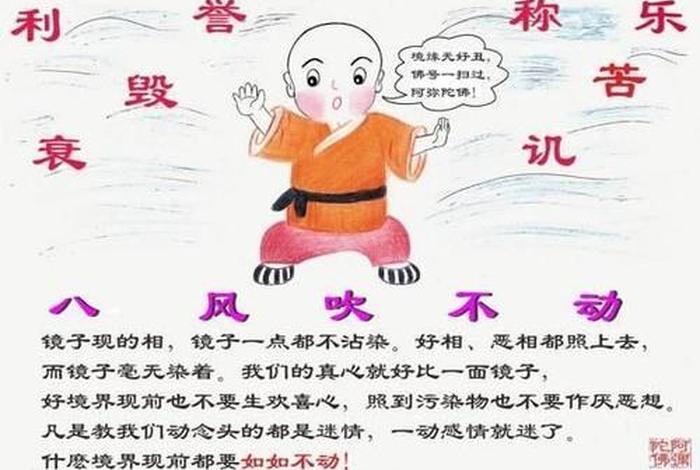 利
誉
称
乐
毁
苦
衰
讥
境缘无好丑，
佛号一扫过，
阿弥陀佛！
八风吹不动
镜子现的相，镜子一点都不沾染。好相、恶相都照上去，
而镜子毫无染着。我们的真心就好比一面镜子，
好境界现前也不要生欢喜心，照到污染物也不要作厌恶想。
凡是教我们动念头的都是迷情，一动感情就迷了。
什麽境界现前都要如如不动！
阿弥
陀佛